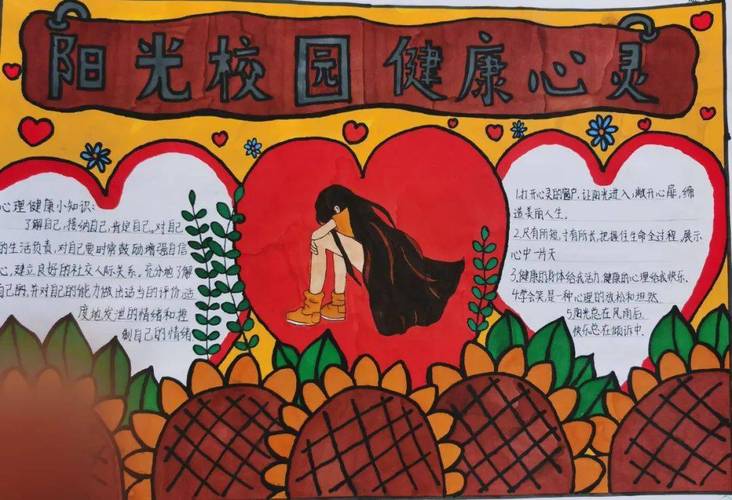 阳光校园 健康心灵
心理健康小知识:
了解自己,接纳自己,肯定自己。对自己
的生活负责,对自己要时常鼓励增强自信
心,建立良好的社交人际关系。充分地了解
自己的,并对自己的能力做出适当的评价适
度地发泄的情绪和控
制自己的情绪
1.打开心灵的窗户,让阳光进入;敞开心扉,缔
造美丽人生。
2.尺有所短,寸有所长,把握住生命全过程,展示
心中一片天
3.健康的身体给我活力,健康的心理给我快乐.
4学会笑,是一种心理的放松和坦然
5阳光总在风雨后,
快乐总在倾诉中.